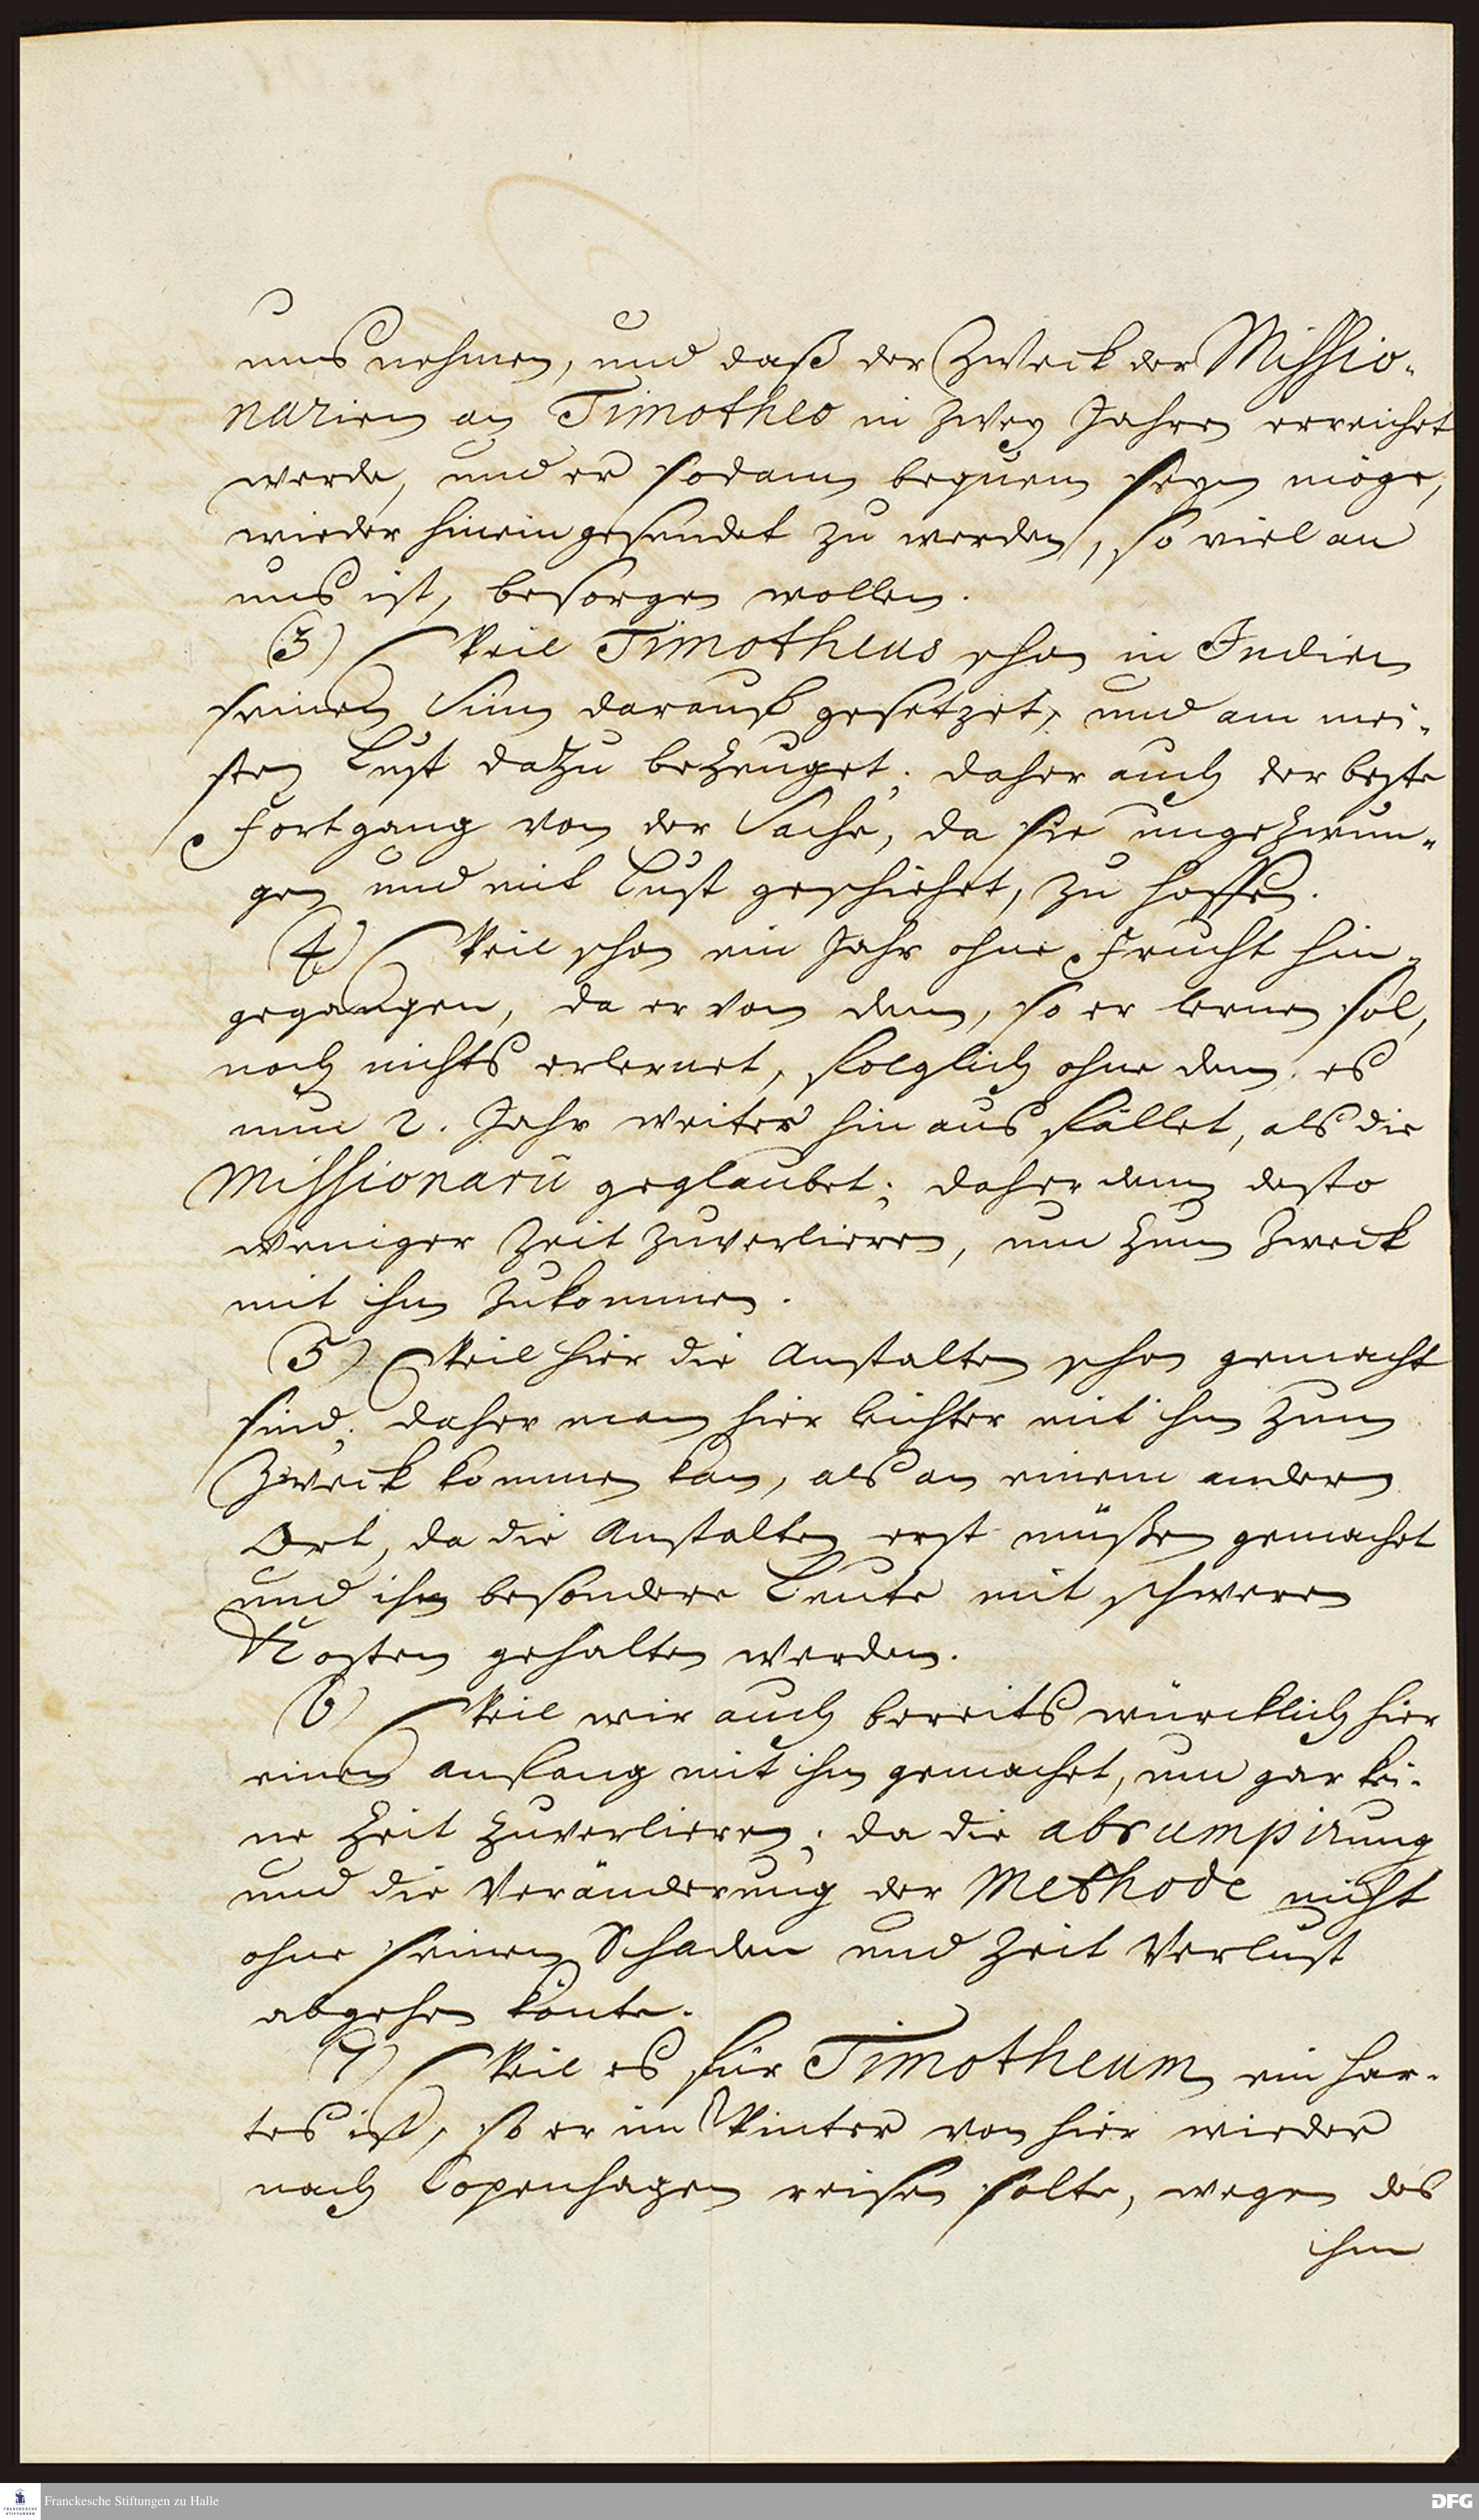 uns nehmen, und daß der Zweck der Missio-
narien an Timotheo in zwey Jahren erreichet
werde, und er sodann bequem seyn möge,
wieder hinein gesendet zu werden, so viel an
uns ist, besorgen wollen.
3) Weil Timotheus schon in Indien
seinen Sinn darauf gesetzet, und am mei-
sten Lust dazu bezeuget; daher auch der beste
Fortgang von der Sache, da sie ungezwun-
gen und mit Lust geschiehet, zu hoffen.
4) Weil schon ein Jahr ohne Frucht hin-
gegangen, da er von dem, so er lernen sol,
noch nichts erlernet, folglich ohne dem es
nun 2. Jahr weiter hinaus fället, als die
Missionarii geglaubet; daher denn desto
weniger Zeit zuverlieren, um zum Zweck
mit ihm zukommen.
5) Weil hier die Anstalten schon gemacht
sind; daher man hier leichter mit ihm zum
Zweck kommen kan, als an einem andern
Ort, da die Anstalten erst müßen gemachet
und ihm besondere Leute mit schweren
Kosten gehalten werden.
6) Weil wir auch bereits würcklich hier
einen anfang mit ihm gemachet, um gar kei-
ne Zeit zuverlieren; da die abrumpirung
und die Veränderung der Methode nicht
ohne seinen Schaden und Zeit Verlust
abgehen könte.
7) Weil es für Timotheum ein har-
tes ist, so er im Winter von hier wieder
nach Copenhagen reisen solte, wegen des
ihm
Franckesche Stiftungen zu Halle
DFG